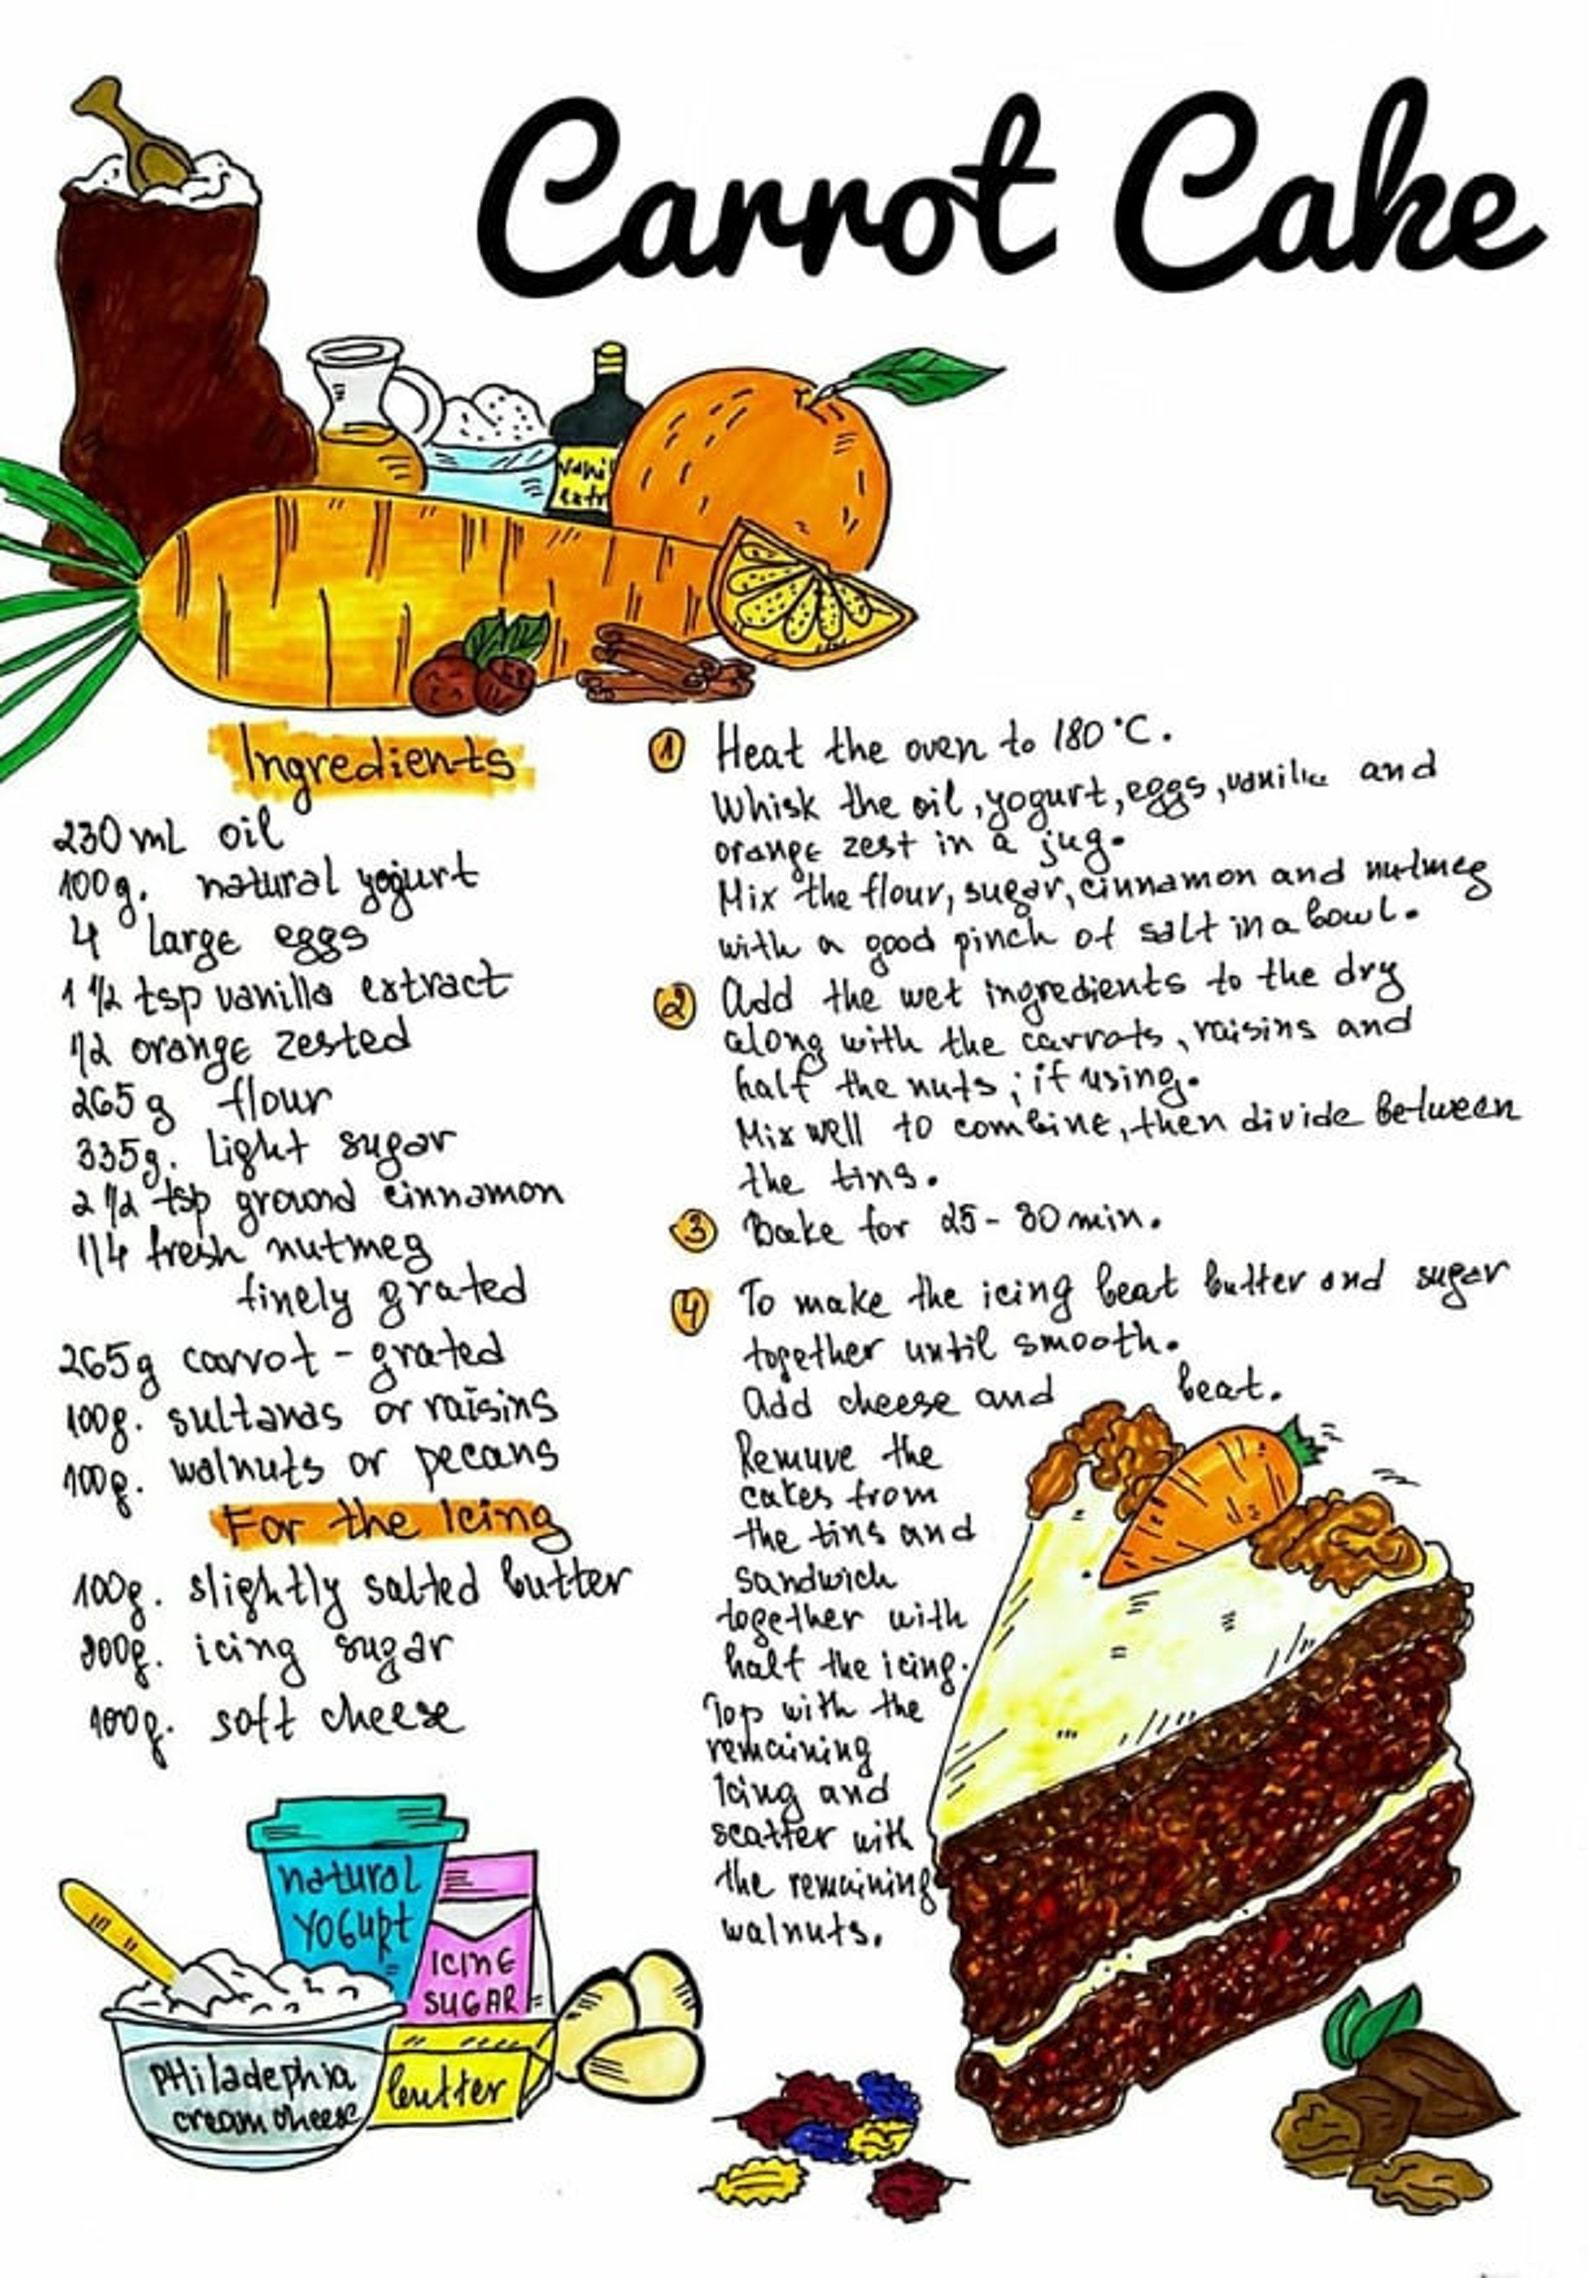 Carrot Cake
vanil
extr
Ingredients
230 mL oil
100g. natural yogurt
4 large eggs
1 1/2 tsp vanilla extract
1/2 orange zested
265g flour
335g. light sugar
2 1/2 tsp ground cinnamon
1/4 fresh nutmeg
finely grated
265g carrot - grated
100g. sultanas or raisins
100g. walnuts or pecans
For the Icing
100g. slightly salted butter
300g. icing sugar
100g. soft cheese
1 Heat the oven to 180°C.
Whisk the oil, yogurt, eggs, vanilla and
orange zest in a jug.
Mix the flour, sugar, cinnamon and nutmeg
with a good pinch of salt in a bowl.
2 Add the wet ingredients to the dry
along with the carrots, raisins and
half the nuts; if using.
Mix well to combine, then divide between
the tins.
3 Bake for 25 - 30 min.
4 To make the icing beat butter and sugar
together until smooth.
Add cheese and beat.
Remuve the
cakes from
the tins and
sandwich
together with
half the icing.
Top with the
remaining
Icing and
scatter with
the remaining
walnuts.
natural
YOGURT
ICING
SUGAR
PHiladephia
cream cheese
butter